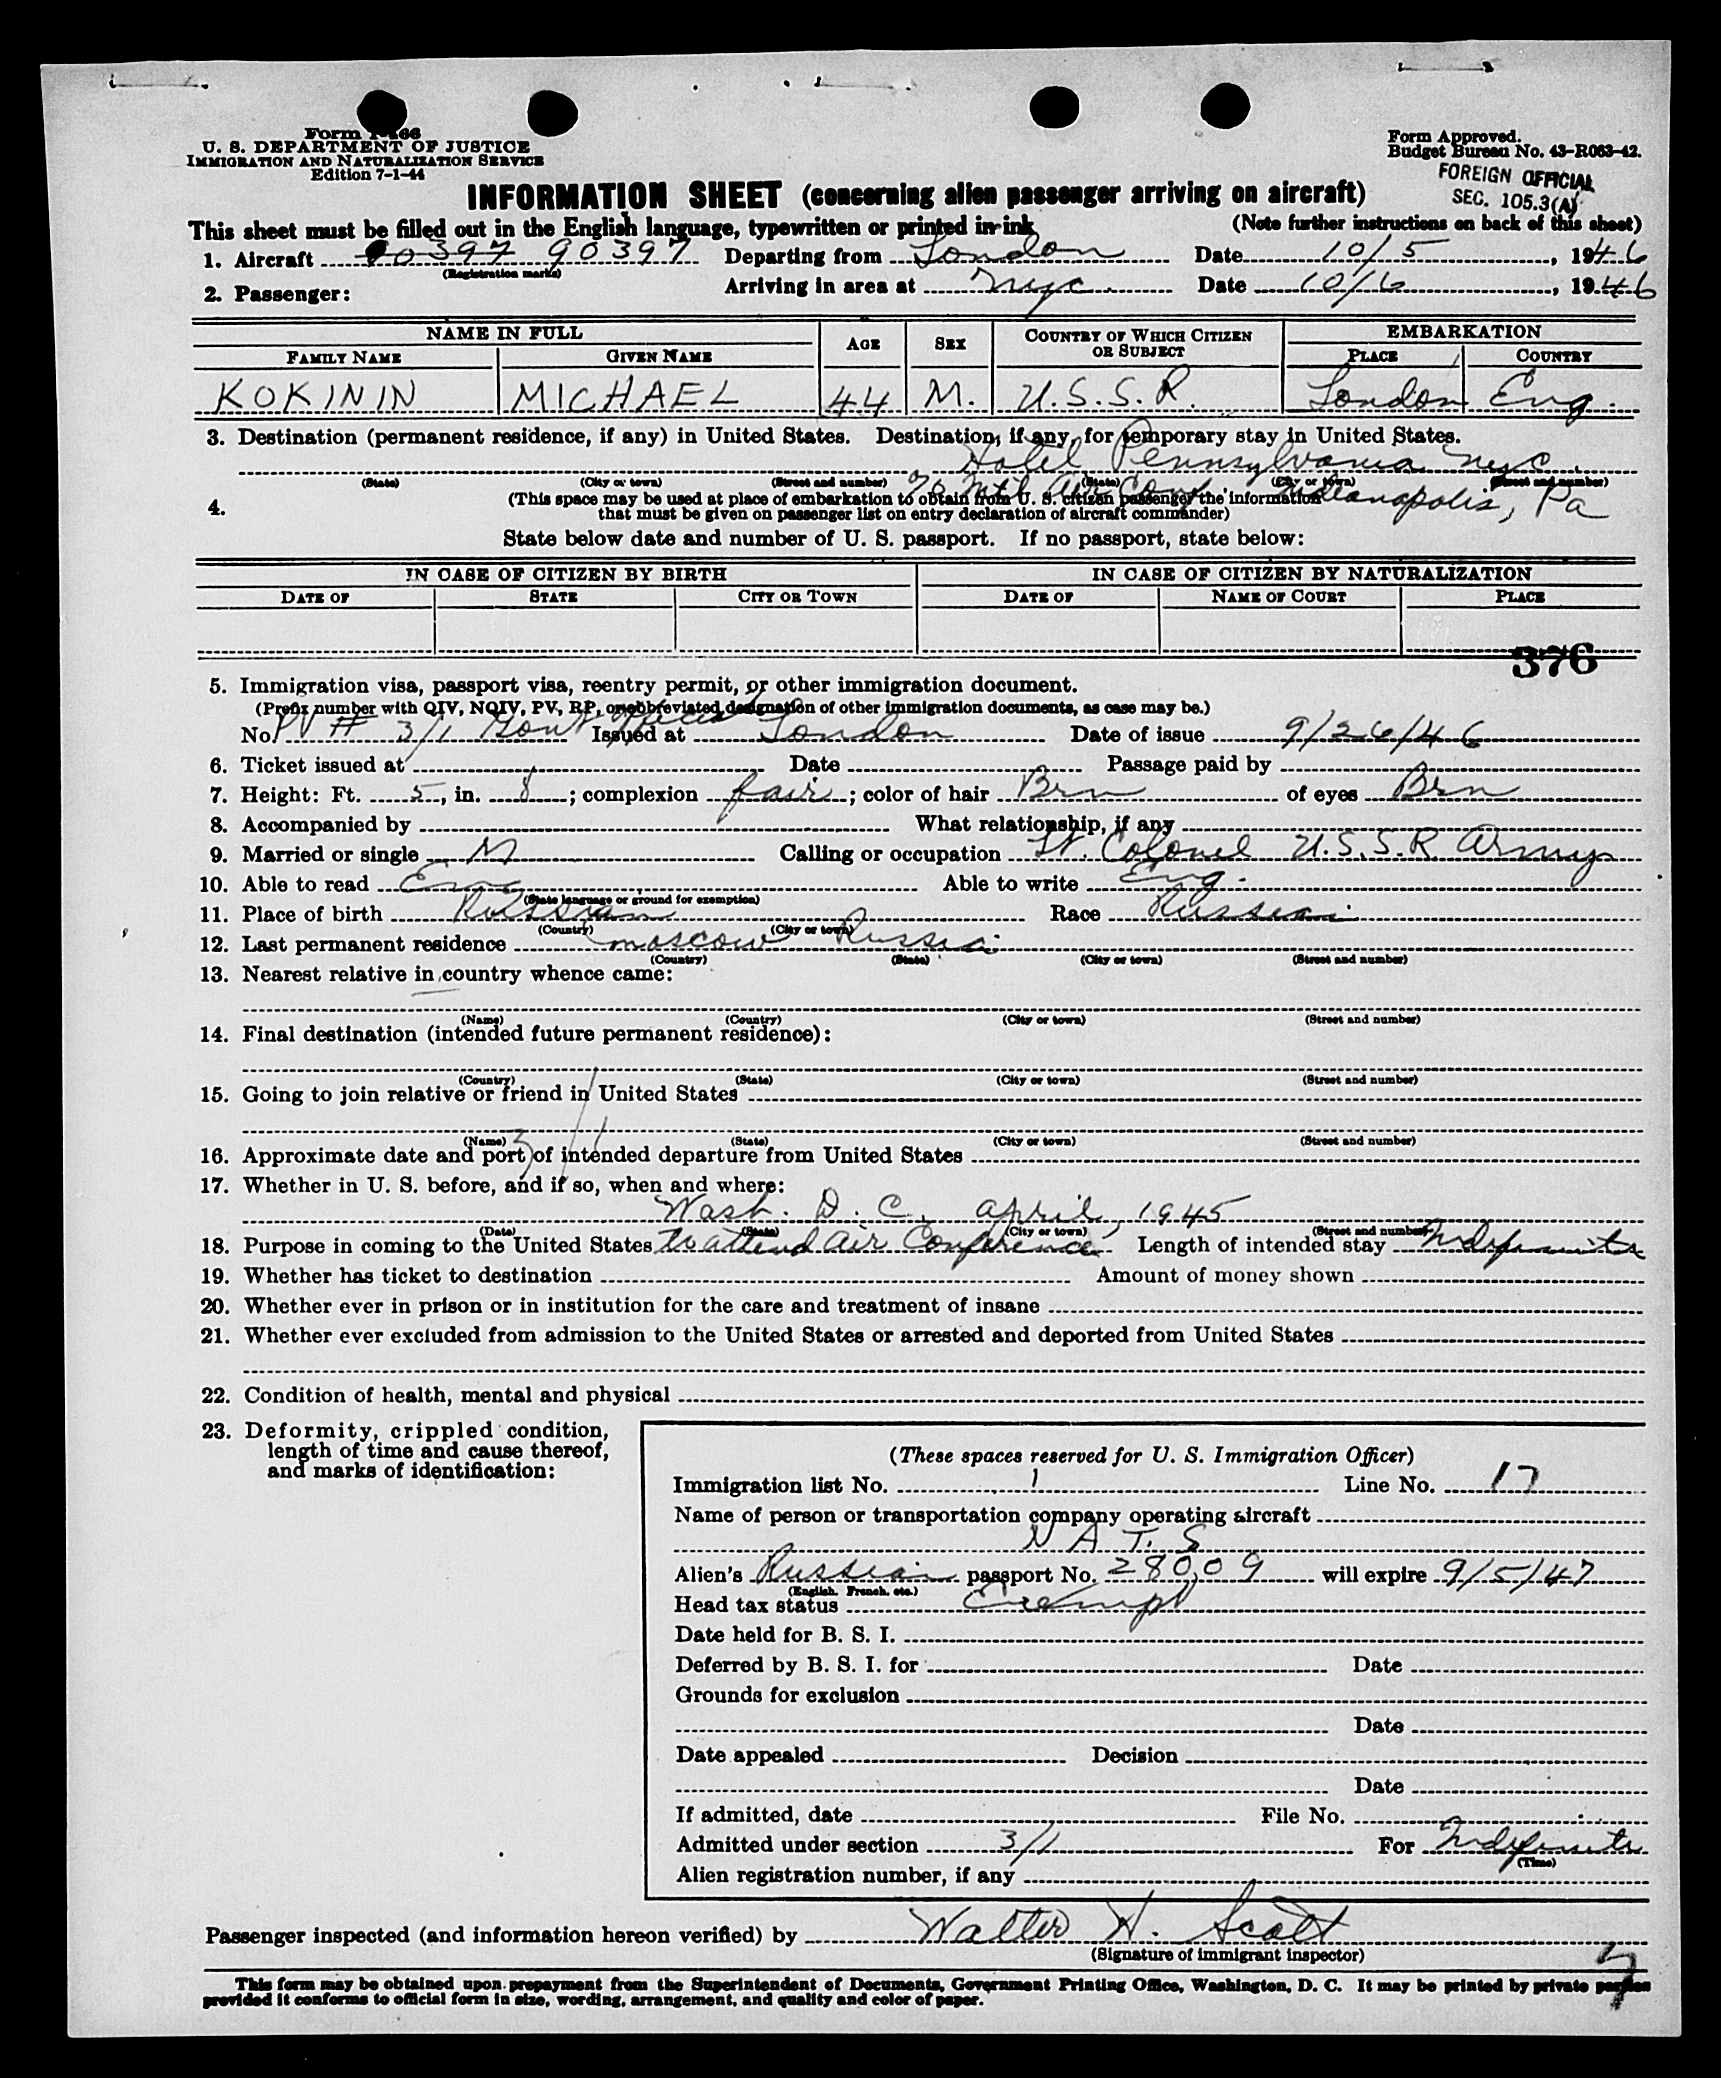 Form I-466
U. S. DEPARTMENT OF JUSTICE
IMMIGRATION AND NATURALIZATION SERVICE
Edition 7-1-44
Form Approved.
Budget Bureau No. 43-R063-42.
FOREIGN OFFICIAL
SEC. 105.3(A)
INFORMATION SHEET (concerning alien passenger arriving on aircraft)
This sheet must be filled out in the English language, typewritten or printed in ink
(Note further instructions on back of this sheet)
1. Aircraft 90397 90397 Departing from London Date 10/5, 1946
(Registration marks)
2. Passenger: Arriving in area at nyc. Date 10/6, 1946
NAME IN FULL AGE SEX COUNTRY OF WHICH CITIZEN OR SUBJECT EMBARKATION
FAMILY NAME GIVEN NAME PLACE COUNTRY
KOKININ MICHAEL 44 M. U.S.S.R. London Eng.
3. Destination (permanent residence, if any) in United States. Destination, if any, for temporary stay in United States.
Hotel Pennsylvania nyc.
(State) (City or town) (Street and number) (State) (City or town) (Street and number)
To Int'l Air Conf. Indianapolis, Pa
4. (This space may be used at place of embarkation to obtain from U. S. citizen passenger the information
that must be given on passenger list on entry declaration of aircraft commander)
State below date and number of U. S. passport. If no passport, state below:
IN CASE OF CITIZEN BY BIRTH IN CASE OF CITIZEN BY NATURALIZATION
DATE OF STATE CITY OR TOWN DATE OF NAME OF COURT PLACE
376
5. Immigration visa, passport visa, reentry permit, or other immigration document.
(Prefix number with QIV, NQIV, PV, RP, or abbreviated designation of other immigration documents, as case may be.)
No. PV # 3/1 Gov't Official Issued at London Date of issue 9/26/46
6. Ticket issued at Date Passage paid by
7. Height: Ft. 5, in. 8; complexion fair; color of hair Brn of eyes Brn
8. Accompanied by What relationship, if any
9. Married or single M Calling or occupation Lt. Colonel U.S.S.R. Army
10. Able to read Eng Able to write Eng.
(State language or ground for exemption)
11. Place of birth Russian Race Russian
(Country) (City or town)
12. Last permanent residence moscow Russia
(Country) (State) (City or town) (Street and number)
13. Nearest relative in country whence came:
(Name) (Country) (City or town) (Street and number)
14. Final destination (intended future permanent residence):
(Country) (State) (City or town) (Street and number)
15. Going to join relative or friend in United States
(Name) (State) (City or town) (Street and number)
3/1
16. Approximate date and port of intended departure from United States
17. Whether in U. S. before, and if so, when and where:
Wash. D. C. april, 1945
(Date) (State) (City or town) (Street and number)
18. Purpose in coming to the United States to attend air Conference Length of intended stay Indefinite
19. Whether has ticket to destination Amount of money shown
20. Whether ever in prison or in institution for the care and treatment of insane
21. Whether ever excluded from admission to the United States or arrested and deported from United States
22. Condition of health, mental and physical
23. Deformity, crippled condition,
length of time and cause thereof,
and marks of identification:
(These spaces reserved for U. S. Immigration Officer)
Immigration list No. 1 Line No. 17
Name of person or transportation company operating aircraft
N A T. S
Alien's Russian passport No. 28009 will expire 9/5/47
(English, French, etc.)
Head tax status Exempt
Date held for B. S. I.
Deferred by B. S. I. for Date
Grounds for exclusion
Date
Date appealed Decision
Date
If admitted, date File No.
Admitted under section 3/1 For Indefinite
(Time)
Alien registration number, if any
Passenger inspected (and information hereon verified) by Walter H. Scott
(Signature of immigrant inspector)
This form may be obtained upon prepayment from the Superintendent of Documents, Government Printing Office, Washington, D. C. It may be printed by private parties
provided it conforms to official form in size, wording, arrangement, and quality and color of paper.